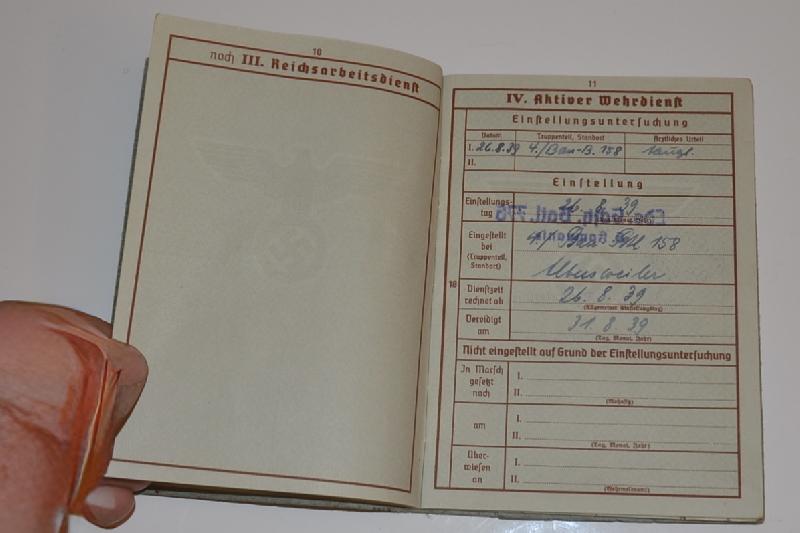 10
noch III. Reichsarbeitsdienst
11
IV. Aktiver Wehrdienst
Einstellungsuntersuchung
Datum: Truppenteil, Standort Ärztliches Urteil
I. 26.8.39 4./Bau-B. 158 taugl.
II.
Einstellung
Einstellungs-
tag
26. 8. 39
Eingestellt
bei
(Truppenteil,
Standort)
4./ Bau 158
18
Dienstzeit
rechnet ab
26. 8. 39
Vereidigt
am
31. 8. 39
(Tag, Monat, Jahr)
Nicht eingestellt auf Grund der Einstellungsuntersuchung
In Marsch
gesetzt
nach
I.
II.
am
I.
II.
(Tag, Monat, Jahr)
Über-
wiesen
an
I.
II.
(Wehrmeldeamt)